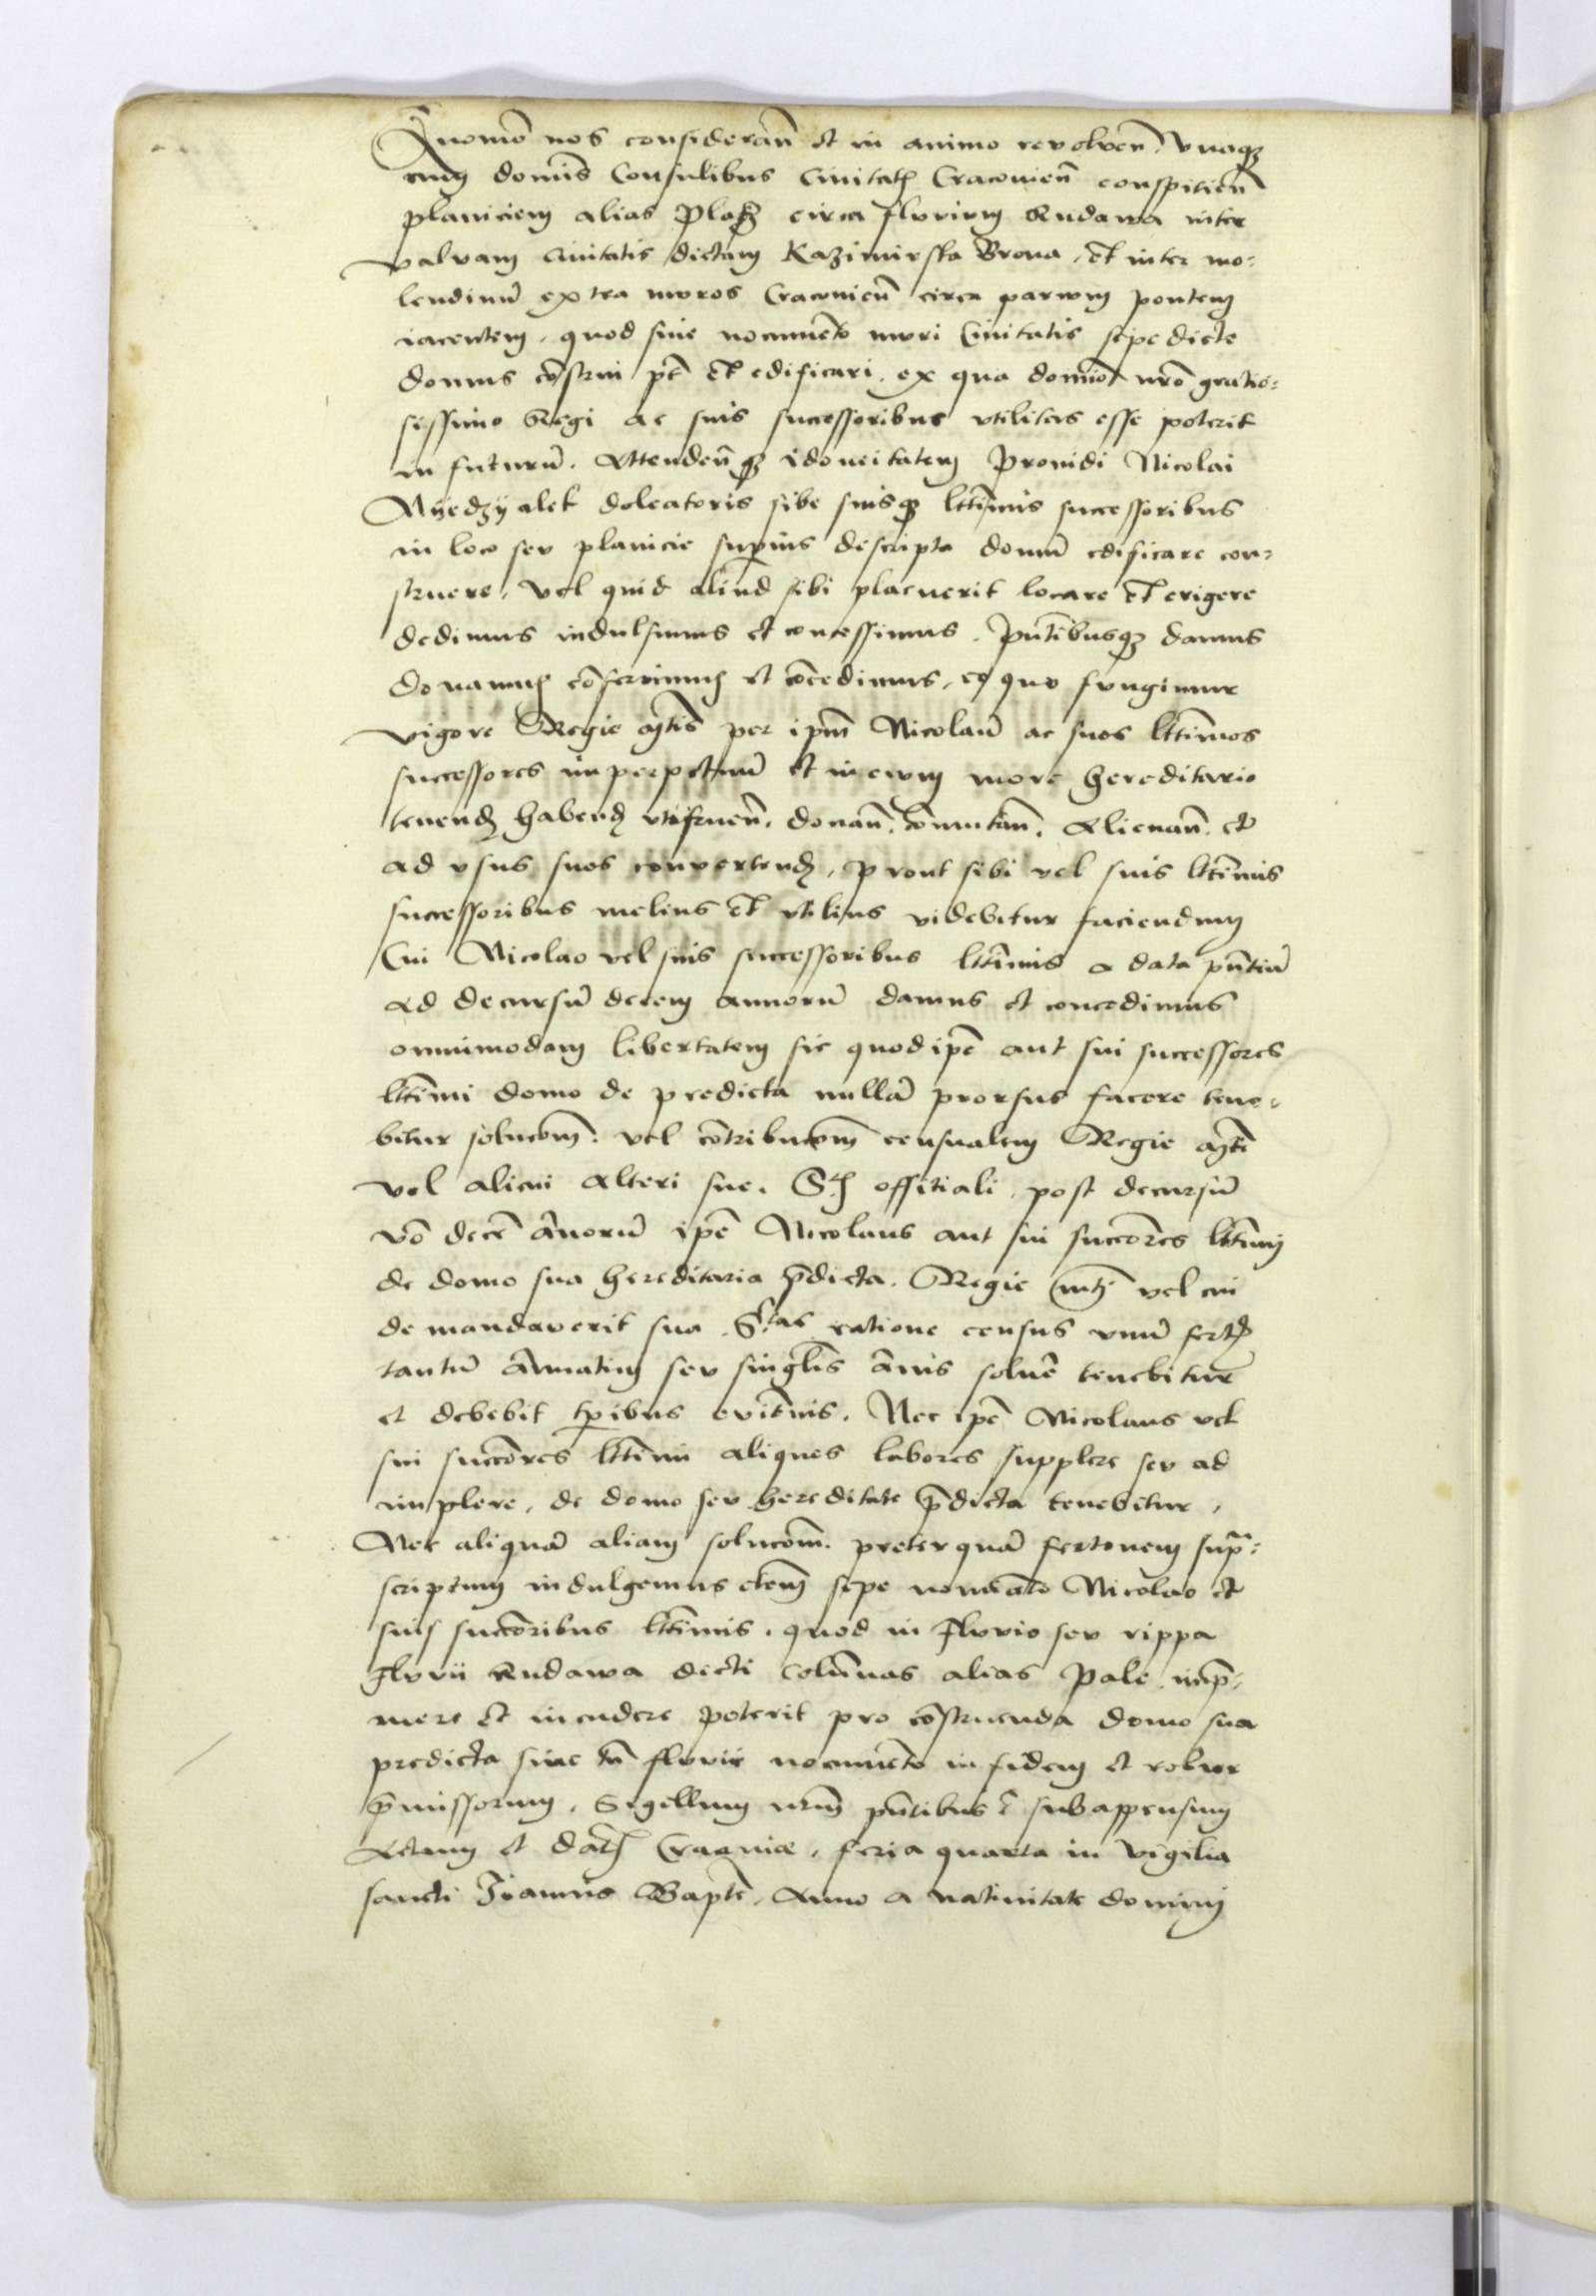 Quomo͞ nos consideran̄ et in animo revolven̄. Vnaqȝ
cum domīs Consulibus Civitatȩ Cracovien̄ conspitien̄
planiciem alias Placz circa fluvium Rudawa inter
valvam Civitatis dictam Kazimirska Brona, et inter mo-
lendinū extra muros Cracovien̄ circa parvum pontem
iacentem, quod sine nocumēto muri Civitatis sepe dicte
domus cōstrui pt̄ et edificari, ex qua domīo nr̄o gratio-
sissimo Regi ac suis successoribus vtilitas esse poterit
in futurū. Attenden̄qȝ idoneitatem Providi Nicolai
Myedzyalek doleatoris sibe suisqȝ ltt̄imis successoribus
in loco sev planicie superius descripta domū edificare con-
struere, vel quid aliud sibi placuerit locare et erigere
dedimus indulsimus et concessimus. pn̄tibusqȝ damus
donamus cōferrimus et cōcedimus, eo quo fungimur
vigore Regie mt̄is per ipm̄ Nicolaū ac suos ltt̄imos
successores in perpetuū et in evum more hereditario
tenendȩ habendȩ vtifruen̄. donan̄. cōmutan̄. Alienan̄. et
ad vsus suos convertendȩ, prout sibi vel suis ltt̄imis
successoribus melius et vtilius videbitur faciendum
Cui Nicolao vel suis successoribus ltt̄imis a data pn̄tiū
ad decursū decem annorū damus et concedimus
omnimodam libertatem sic quod ipē aut sui successores
ltt̄imi domo de predicta nullā prorsus facere tene-
bitur solucōm. vel cōtribucōm censualem Regie mt̄i
vel alicui alteri sue. Stȩ offitiali, post decursū
vō decē ānorū ipē Nicolaus aut sui succōres ltt̄imi
de domo sua hereditaria p̄dicta. Regie mtȩ vel cui
de mandaverit sua Stas ratione census vnū fertȩ
tantū ānuatim sev singl̄is ānis solvē tenebitur
et debebit tp̄ibus evit̄nis. Nec ipē Nicolaus vel
sui succōres ltt̄imi aliquos labores supplere sev ad
implere, de domo sev hereditate p̄dicta tenebitur,
Nec aliquā aliam solucōm. preter quā fertonem sup̄-
scriptum indulgemus etem̄ sepe nomīato Nicolao et
suis succōribus ltt̄imis. quod in fluvio sev rippa
fluvii Rudawa dicti colūnas alias Pale imp̄-
mere et incudere poterit pro cōstruenda domo sua
predicta sine tn̄ fluvii nocumēto in fidem et robur
p̄missorum. Sigillum nrm̄ pn̄tibus ē subappensum
Actum et datȩ Cracovie, feria quarta in vigilia
sancti Joannis Bapte͞. Anno a nativitate domini